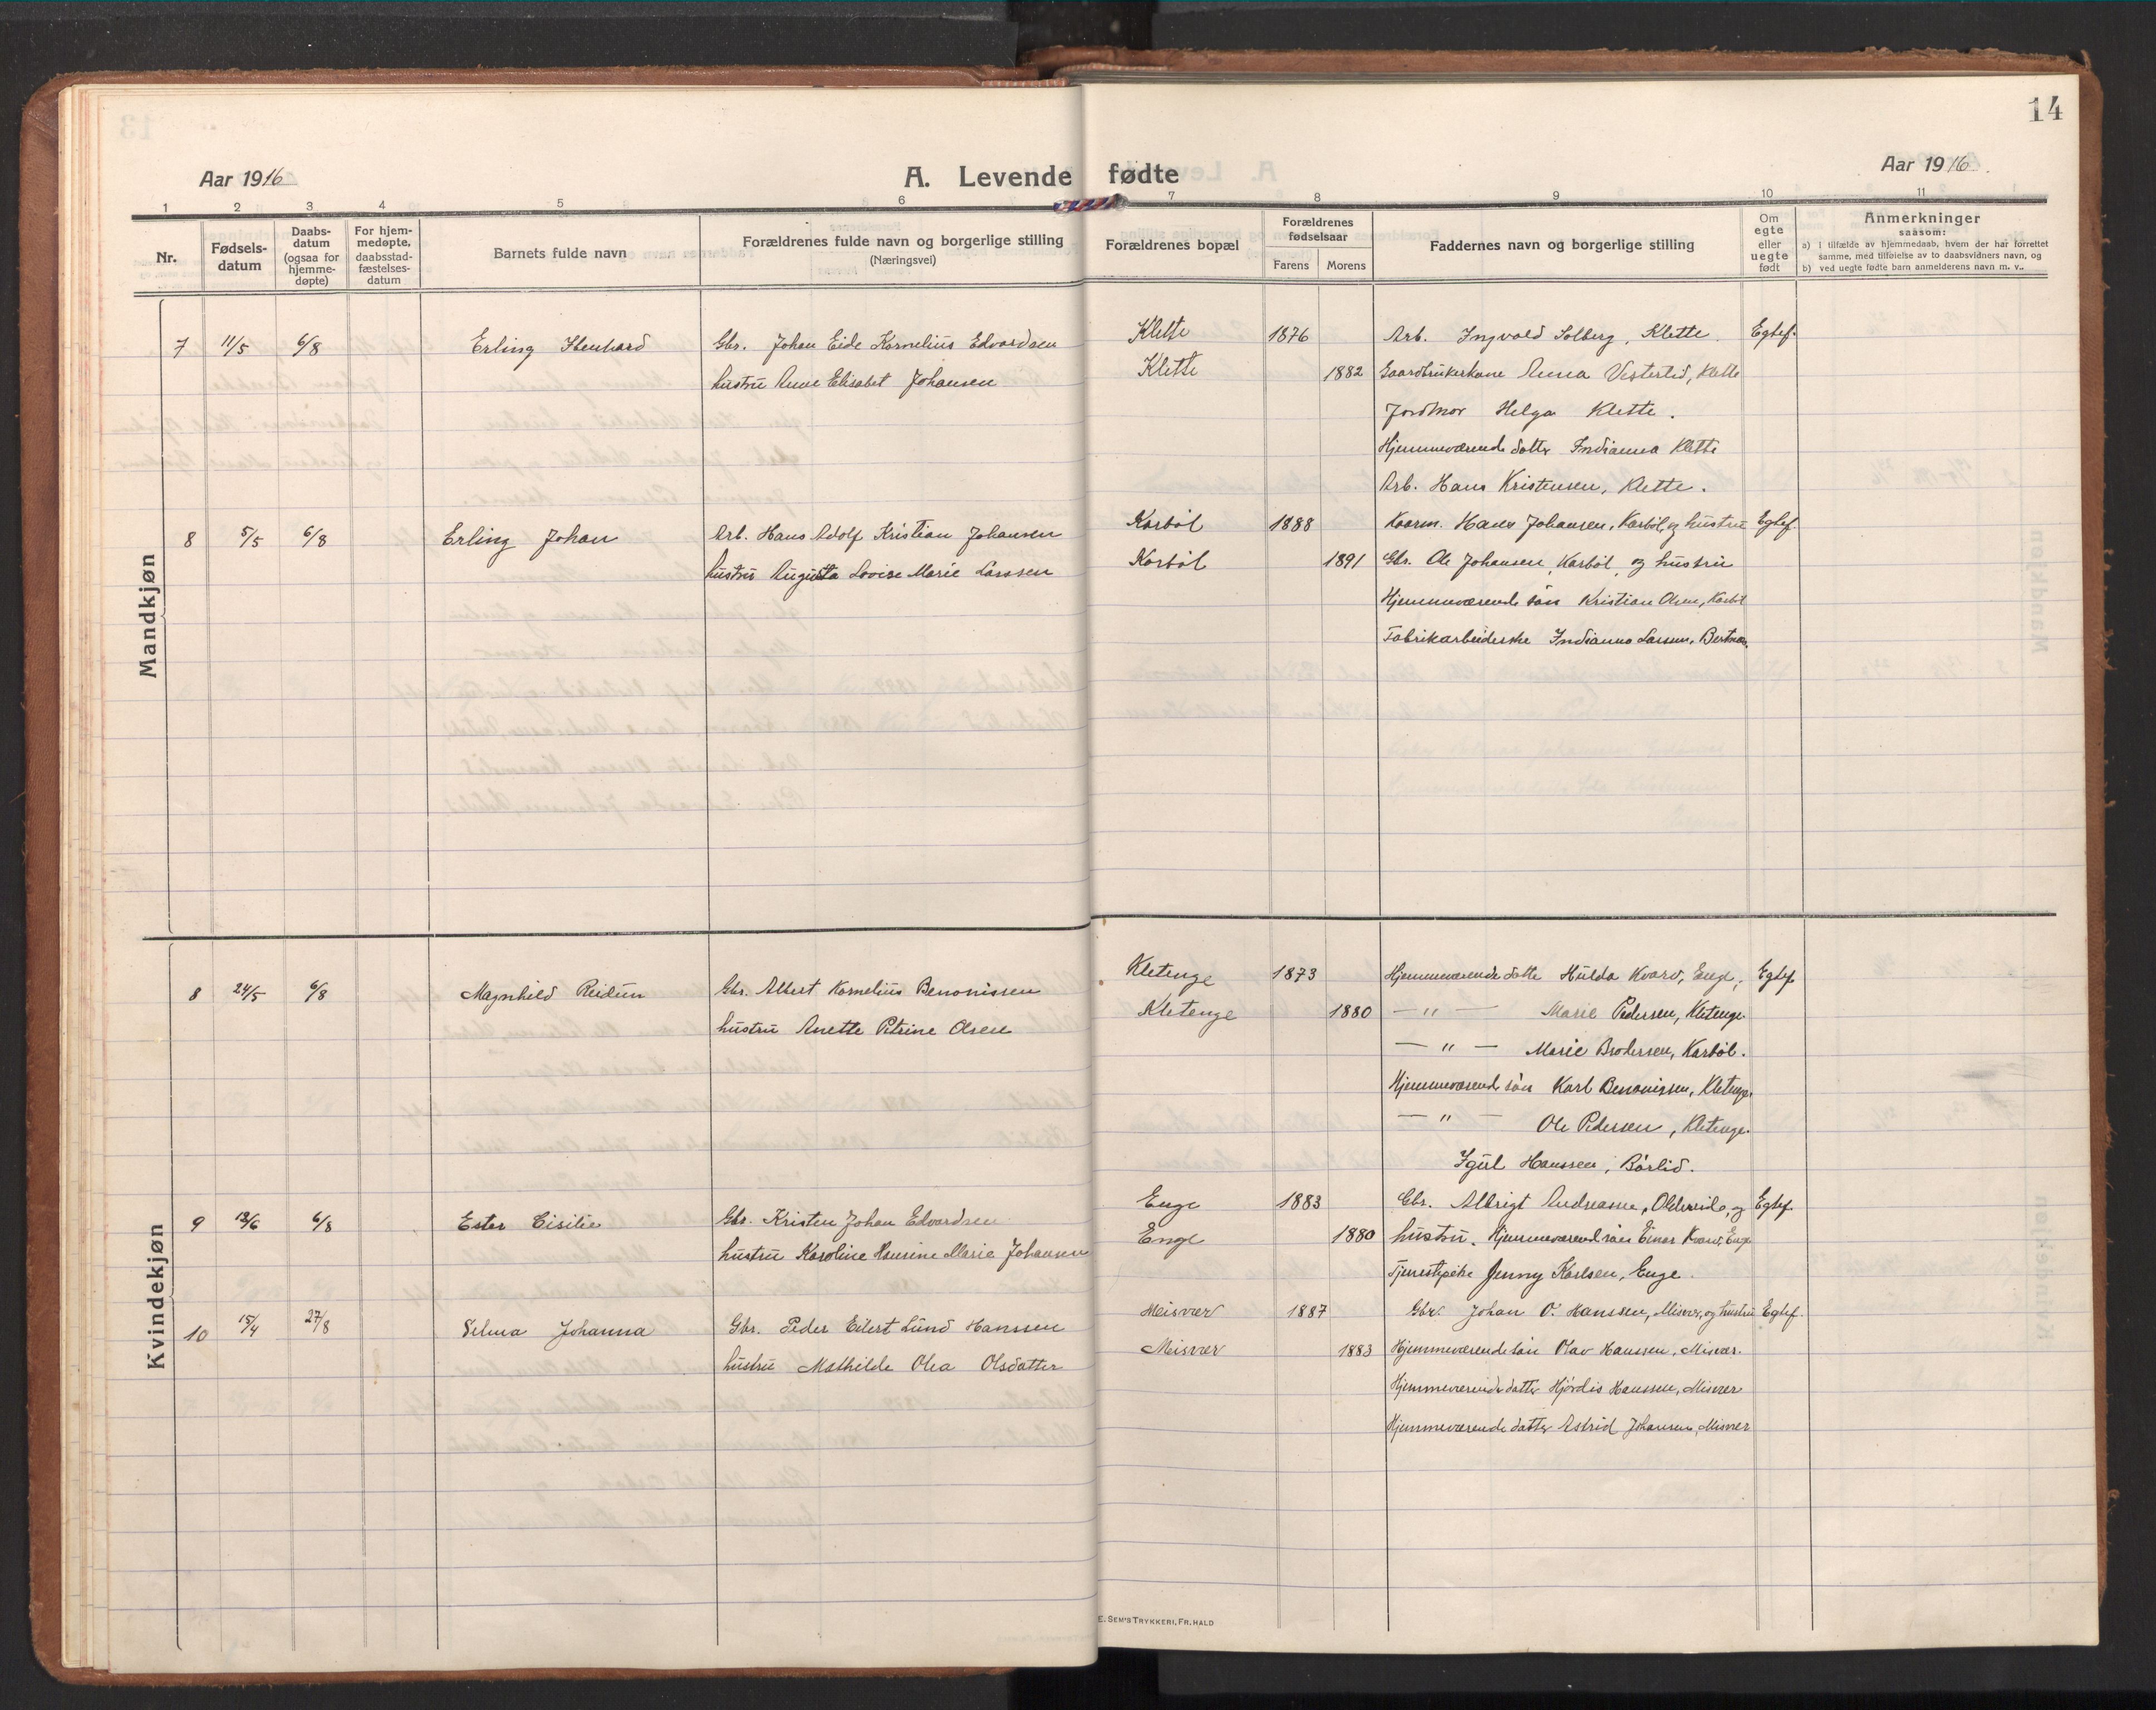 14
Aar 1916
A. Levende fødte
Aar 1916.
1 2 3 4 5 6 7 8 9 10 11
Nr.
Fødsels-
datum
Daabs-
datum
(ogsaa for
hjemme-
døpte)
For hjem-
medøpte,
daabsstad-
fæstelses-
datum
Barnets fulde navn
Forældrenes fulde navn og borgerlige stilling
(Næringsvei)
Forældrenes bopæl
Forældrenes
fødselsaar
Farens Morens
Faddernes navn og borgerlige stilling
Om
egte
eller
uegte
født
Anmerkninger
saasom:
a) i tilfælde av hjemmedaab, hvem der har forrettet
samme, med tilføielse av to daabsvidners navn, og
b) ved uegte fødte barn anmelderens navn m. v..
Mandkjøn
7 11/5 6/8 Erling Gbr. Johan Eide Kornelius Edvardsen Klette 1876 Arb. Ingvald Solberg, Klette. Egtef.
hustru Anne Elisabet Johansen Klette 1882 Gaardbrukerkone Anna Vesterlid, Klette
Jordmor Helga Klette.
Hjemmeværende datter Indianna Klette
Arb. Hans Kristensen, Klette.
8 5/5 6/8 Erling Johan Arb. Hans Adolf Kristian Johansen Karbøl 1888 Kaarm. Hans Johansen, Karbøl, og hustru Egtef.
hustru Augusta Lovise Marie Larssen Karbøl 1891 Gbr. Ole Johansen, Karbøl, og hustru
Hjemmeværende søn Kristian Olsen, Karbøl
Fabrikarbeiderske Indianna Larssen,
Kvindekjøn
8 24/5 6/8 Magnhild Reidun Gbr. Albert Kornelius Benonissen Kletenge 1873 Hjemmeværende datte Hulda Kvarv, Enge, Egtef.
hustru Anette Petrine Olsen Kletenge 1880 — " — Marie Pedersen, Kletenge.
— " — Marie Brodersen, Karbøl.
Hjemmeværend søn Karl Benonissen, Kletenge.
— " — Ole Pedersen, Kletenge.
Hanssen, Børlid.
9 13/6 6/8 Ester Gbr. Kristen Johan Edvardsen Enge 1883 Gbr. Albrigt Andreassen, og Egtef.
hustru Karoline Marie Johansen Enge 1880 hustru. Hjemmeværend søn Einar Kvarv, Enge
Tjenestepike Jenny Karlsen, Enge.
10 15/4 27/8 Selma Johanna Gbr. Peder Eilert Lund Hanssen Meisvær 1887 Gbr. Johan O. Hanssen, Misvær, og hustru Egtef.
hustru Mathilde Olea Olsdatter Meisvær 1883 Hjemmeværende søn Olav Hanssen, Misvær.
Hjemmeværende datter Hjørdis Hanssen, Misvær
Hjemmeværende datter Astrid Johansen, Misvær
E. SEM'S TRYKKERI, FR. HALD